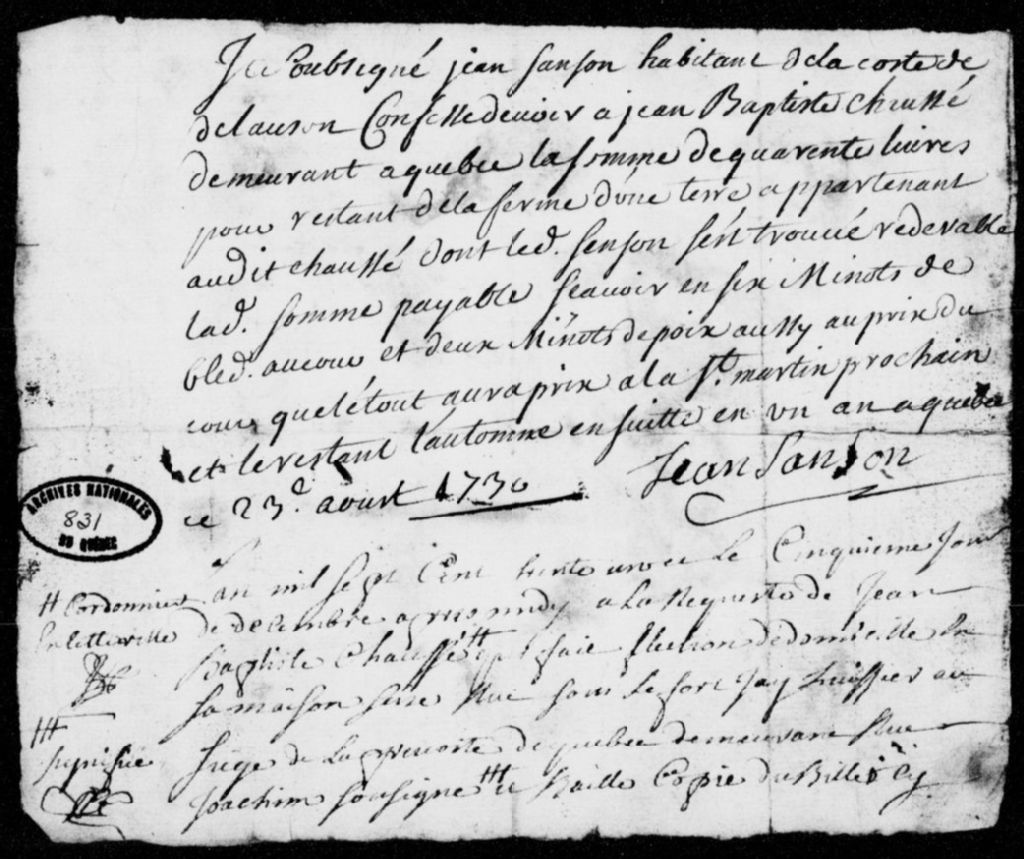 Je Soubsigné jean sanson habitant de la coste de
de lauson Confesse devoir a jean Baptiste chaussé
demeurant a quebec la somme de quarente livres
pour restant de la ferme d'une terre appartenant
audit chaussé dont led. senson s'est trouvé redevable
lad. somme payable scavoir en six Minots de
bled. au cour et deux Minots de poix aussy au prix du
cour que le tout aura prix a la St. martin prochain
et le restant l'automne ensuitte en un an a quebec
ce 23e. aoust 1730 Jean Sanson
ARCHIVES NATIONALES
831
DU QUÉBEC
Lan mil sept Cent trente un et Le Cinquieme Jour
# Cordonnier
En cette ville
de decembre apres midy a La Requeste de Jean
Baptiste Chaussé # qui fait Election de domicille En
sa maison size Rue sous Le fort Jay huissier au
###
signifié
siege de La prevosté de quebec demeurant Rue
Joachim soussigne ### et Baille Copie du Billet Cy